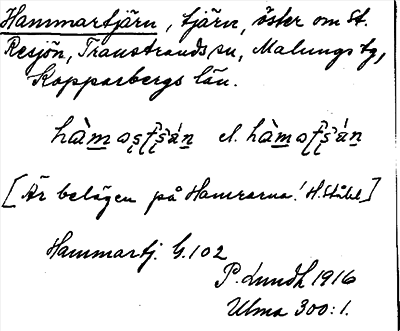 Hammartjärn, tjärn, öster om St.
Resjön, Transtrands, sn, Malungs tg,
Kopparbergs län.
el.
[Är belägen på Hamrarna! H. Ståhl]
Hammartj. G.102
P. Lundh 1916
Ulma 300:1.